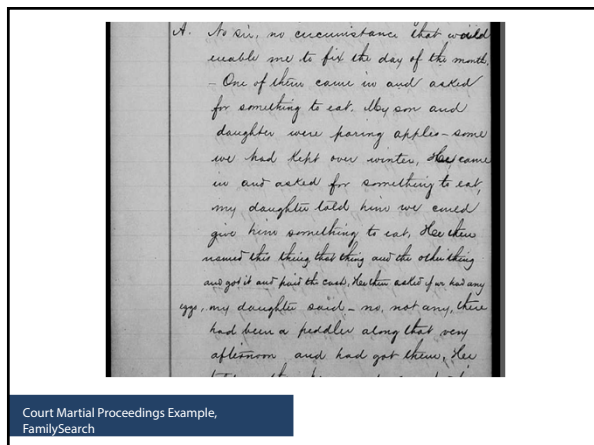 A. No sir, no circumstance that would
enable me to fix the day of the month.
- One of them came in and asked
for something to eat. My son and
daughter were paring apples - some
we had kept over winter, He came
in and asked for something to eat,
my daughter told him we could
give him something to eat, He then
named this thing that thing and the other thing
and got it and paid the cash, He then asked if we had any
eggs, my daughter said - no, not any, there
had been a peddler along that very
afternoon and had got them, He
Court Martial Proceedings Example,
FamilySearch